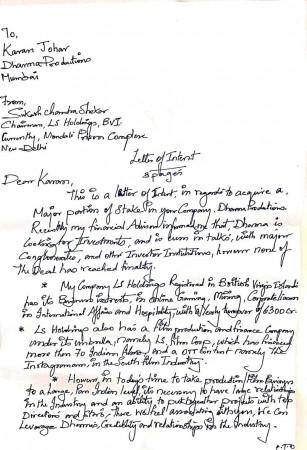 To,
Karan Johar
Dharma Productions
Mumbai
From,
Sukash Chandra Shekar
Chairman, LS Holdings, BVI
Currently, Mandoli Prison Complex
New-Delhi
Letter of Interst
3 pages
Dear Karan,
This is a letter of Intent, in regards to acquire a
Major portion of Stake in your Company, Dharma Productions
Recently my financial Advisor informed me that, Dharma is
looking for Investments, and is been in talks, with major
Conglomerates, and other Investor Institutions, however none of
The Deal has reached finality.
* My Company LS Holdings Registered in British Virgin Islands
has its Business interests, in Online Gaming, Mining, Corporate
in International Affairs and Hospitality, with a yearly turnover of 6300 Cr.
* LS Holdings also has a Film production and finance Company
under its umbrella, namely LS, Film Corp, which has financed
more than 70 Indian films, and a OTT content namely The
, in the South film Industry.
* However, in todays time to take production, Film Business
to a large, Pan Indian level, its necessary to have large relationships
in the Industry and an ability to put together projects with top
Directors and Actors, There with associating with you, we can
Leverage Dharma's Credibility and relationships in the industry.
P.T.O